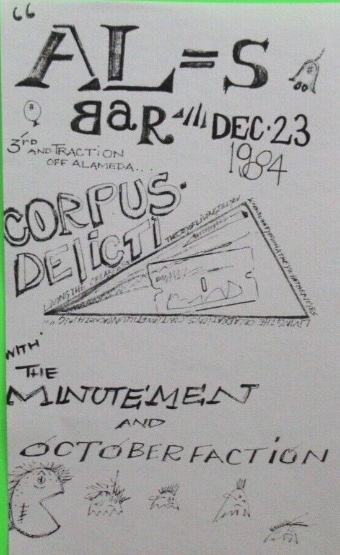 AL=S
BAR DEC·23
3rd AND TRACTION
1984
OFF ALAMEDA...
CORPUS·
DELICTI
WITH
THE
MINUTEMEN
AND
OCTOBER FACTION